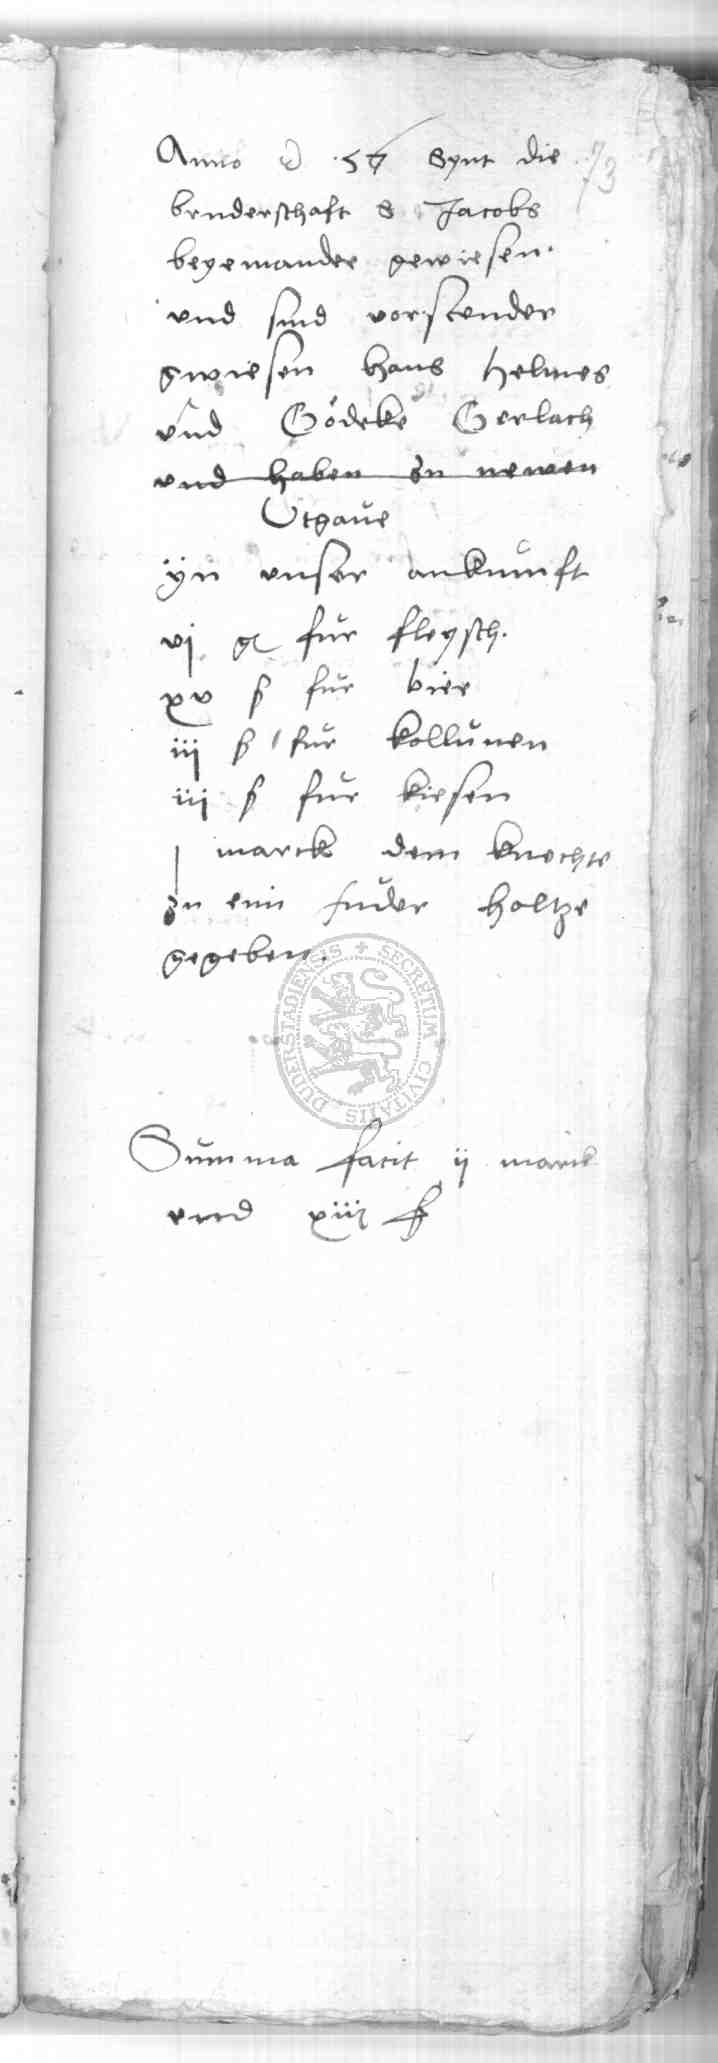 Anno d 57 Synt die 73
bruderschaft S Jacobs
beyemander gewiesen.
vnd sind vorstender
gwiesen Hans Helmes
vnd Gödeke Gerlach
vnd haben in newen
Utgaue
ÿn vnser ankumft
vj gl fur fleysch.
xv ß fur bier
iij ß fur kollunen
iij ß fur kiesen
j marck dem knechte
zu eim fuder holtze
gegeben.
SECRETUM CIVITATIS DUDERSTADIENSIS
Summa facit ij marck
vnd xiij ß